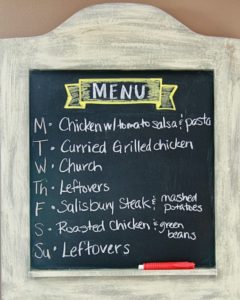 MENU
M • Chicken w/tomato salsa & pasta
T • Curried Grilled chicken
W • Church
Th • Leftovers
F • Salisbury Steak & mashed
potatoes
S • Roasted Chicken & green
beans
Su • Leftovers